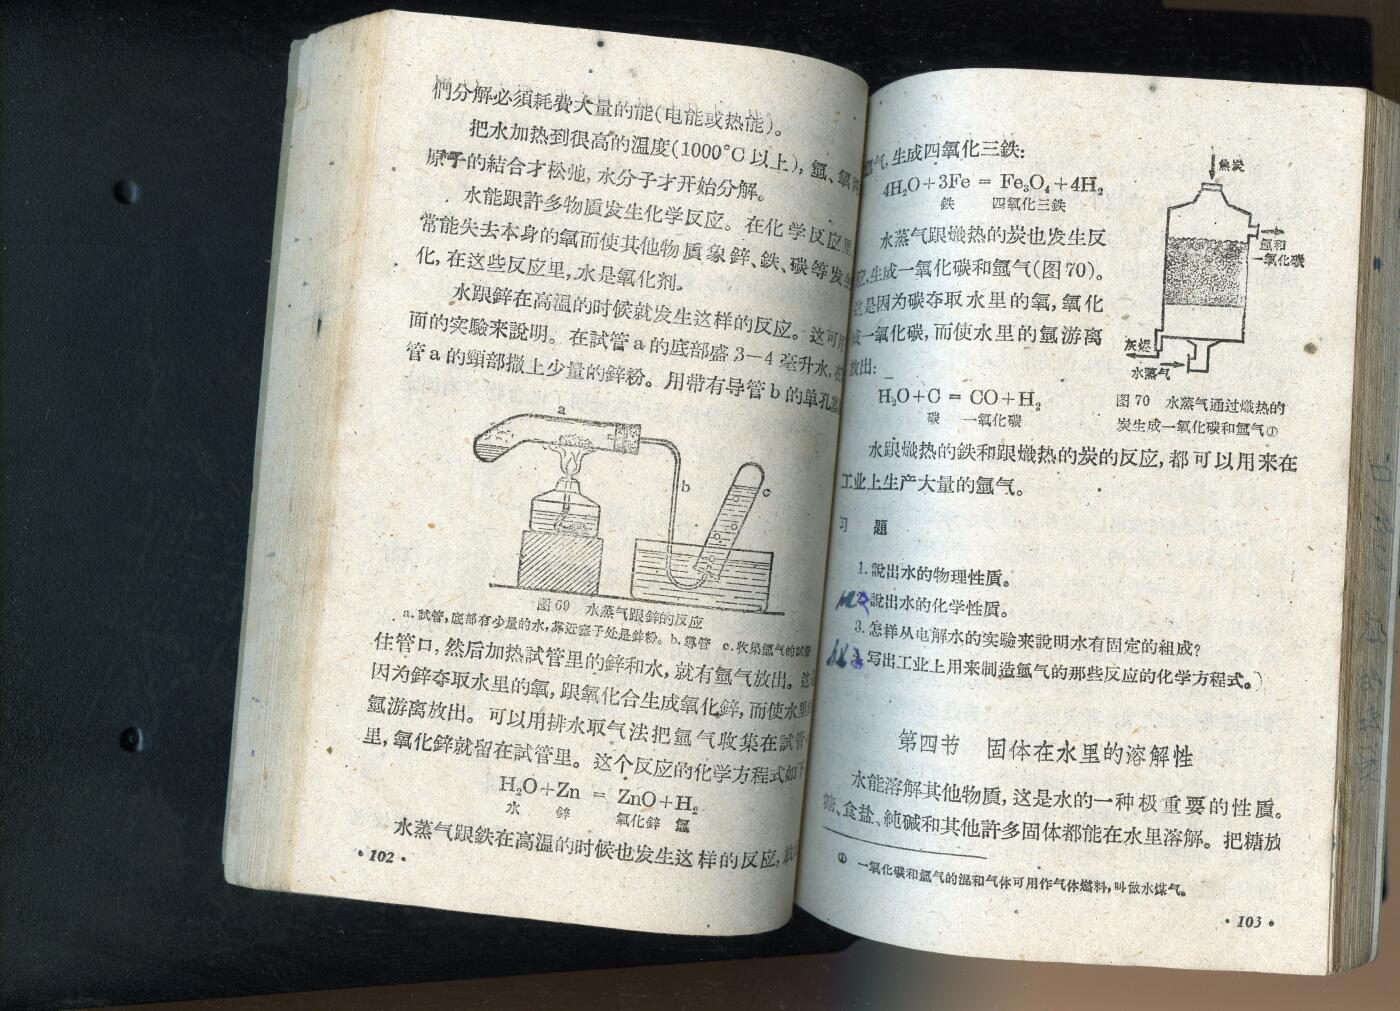 們分解必須耗費大量的能(电能或热能)。
把水加热到很高的温度(1000°C以上),氫、氧
原子的結合才松弛,水分子才开始分解。
水能跟許多物质发生化学反应。在化学反应里
常能失去本身的氧而使其他物质象鋅、鉄、碳等发生
化,在这些反应里,水是氧化剂。
水跟鋅在高温的时候就发生这样的反应。这可用
面的实驗来說明。在試管a的底部盛3—4毫升水,在
管a的頸部撒上少量的鋅粉。用带有导管b的单孔塞
a
b
c
图69 水蒸气跟鋅的反应
a.試管,底部有少量的水,靠近塞子处是鋅粉。b.導管 c.收集氫气的試管
住管口,然后加热試管里的鋅和水,就有氫气放出。这
因为鋅夺取水里的氧,跟氧化合生成氧化鋅,而使水里
氫游离放出。可以用排水取气法把氫气收集在試管
里,氧化鋅就留在試管里。这个反应的化学方程式如下
H₂O+Zn = ZnO+H₂
水 鋅 氧化鋅 氫
水蒸气跟鉄在高温的时候也发生这样的反应,放
·102·
气,生成四氧化三鉄:
4H₂O+3Fe = Fe₃O₄+4H₂
鉄 四氧化三鉄
水蒸气跟熾热的炭也发生反
应,生成一氧化碳和氫气(图70)。
这是因为碳夺取水里的氧,氧化
成一氧化碳,而使水里的氫游离
放出:
H₂O+C = CO+H₂
碳 一氧化碳
焦炭
氫和
一氧化碳
灰烬
水蒸气
图70 水蒸气通过熾热的
炭生成一氧化碳和氫气①
水跟熾热的鉄和跟熾热的炭的反应,都可以用来在
工业上生产大量的氫气。
习 題
1.說出水的物理性质。
說出水的化学性质。
3.怎样从电解水的实驗来說明水有固定的組成?
写出工业上用来制造氫气的那些反应的化学方程式。
第四节 固体在水里的溶解性
水能溶解其他物质,这是水的一种极重要的性质。
糖、食盐、純碱和其他許多固体都能在水里溶解。把糖放
① 一氧化碳和氫气的混和气体可用作气体燃料,叫做水煤气。
·103·